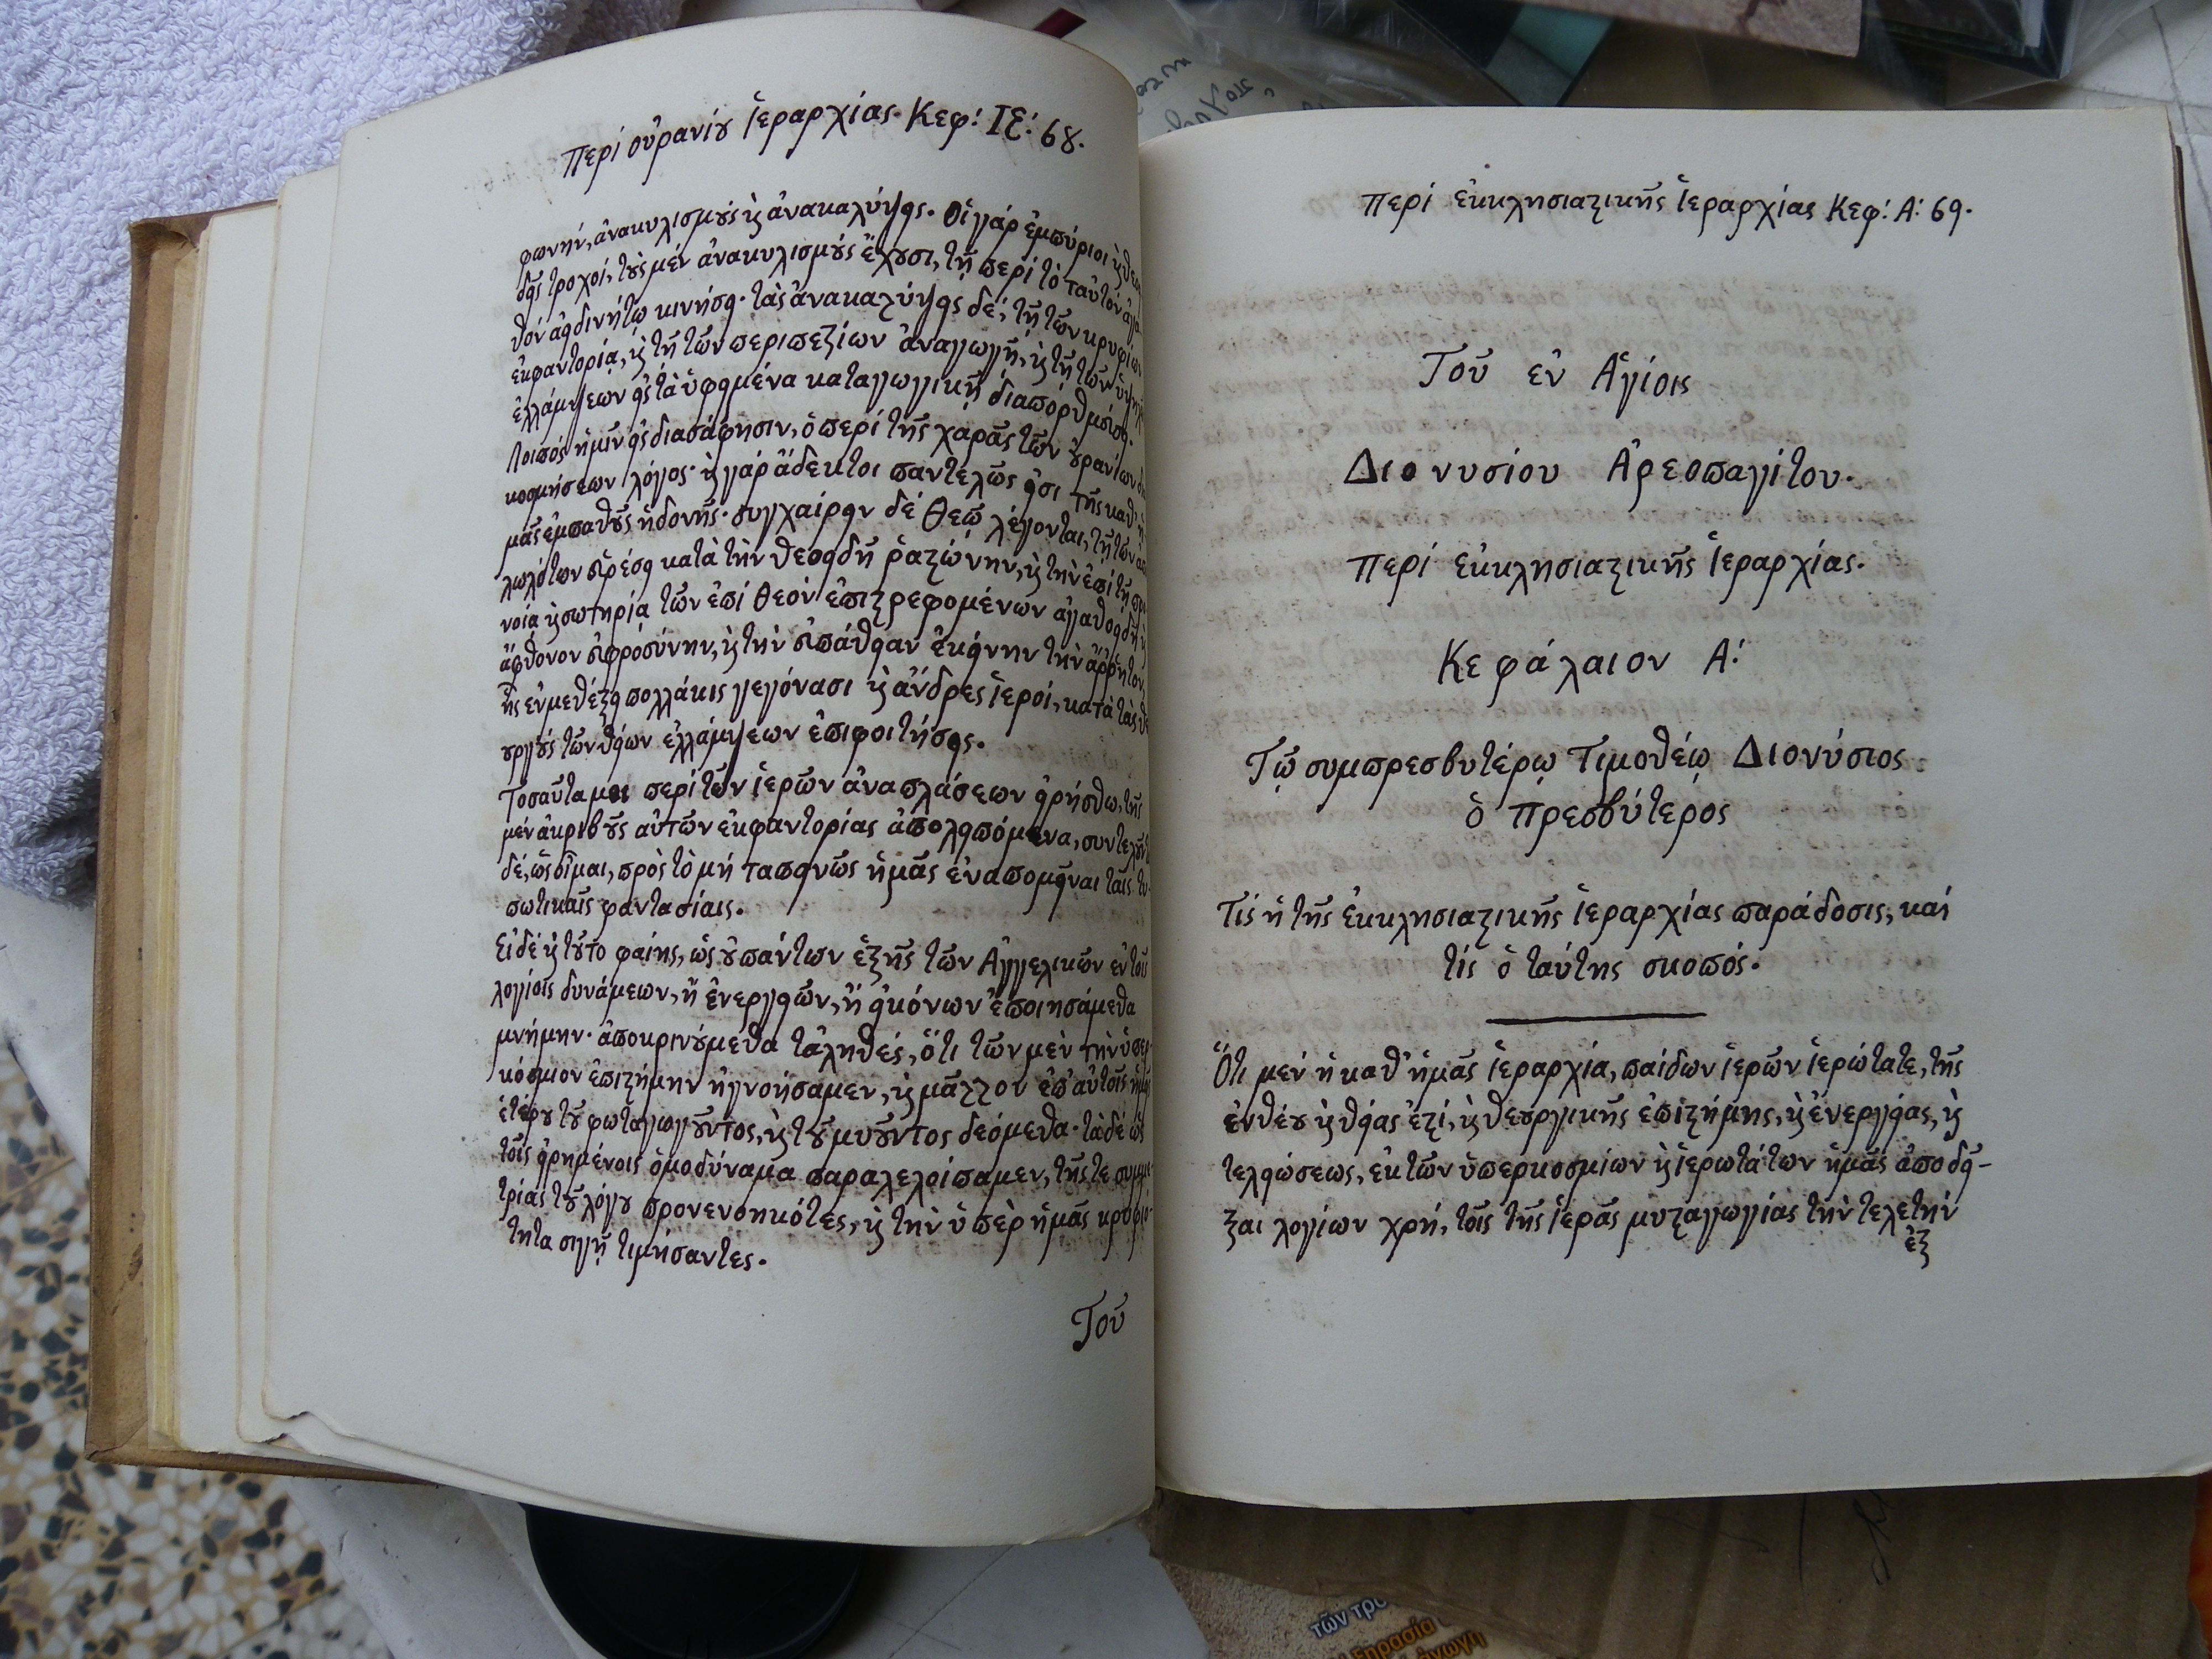 Περί οὐρανίου ἱεραρχίας. Κεφ: ΙΕ: 68.
φωνήν, ἀνακυλισμούς καὶ ἀνακαλύψεις. Οἱ γάρ ἐμπύριοι καὶ θεοει
δεῖς τροχοί, τοὺς μέν ἀνακυλισμούς ἔχουσι, τῇ περί τὸ ταὐτόν ἀγα
θόν ἀειδινήτῳ κινήσει. τὰς ἀνακαλύψεις δέ, τῇ τῶν κρυφίων
ἐκφαντορίᾳ, καὶ τῇ τῶν περιπεζίων ἀναγωγῇ, καὶ τῇ τῶν ὑψηλῶν
ἐλλάμψεων εἰς τὰ ὑφειμένα καταγωγικῇ διαπορθμεύσει.
Λοιπός ἡμῖν εἰς διασάφησιν, ὁ περί τῆς χαρᾶς τῶν οὐρανίων δια
κοσμήσεων λόγος. καὶ γάρ ἄδεκτοι παντελῶς εἰσι τῆς καθ' ἡ
μᾶς ἐμπαθοῦς ἡδονῆς. συγχαίρειν δέ Θεῷ λέγονται, τῇ τῶν ἀπο
λωλότων εὑρέσει κατὰ τὴν θεοειδῆ ῥαστώνην, καὶ τὴν ἐπί τῇ προ
νοίᾳ καὶ σωτηρίᾳ τῶν ἐπί Θεόν ἐπιστρεφομένων ἀγαθοειδῆ καὶ
ἄφθονον εὐφροσύνην, καὶ τὴν εὐπάθειαν ἐκείνην τὴν ἄρρητον,
ἧς ἐν μεθέξει πολλάκις γεγόνασι καὶ ἄνδρες ἱεροί, κατὰ τὰς θε
ουργούς τῶν θείων ἐλλάμψεων ἐπιφοιτήσεις.
Τοσαῦτα μοι περί τῶν ἱερῶν ἀναπλάσεων εἰρήσθω, τῆς
μέν ἀκριβοῦς αὐτῶν ἐκφαντορίας ἀπολειπόμενα, συντελοῦντα
δέ, ὡς οἶμαι, πρὸς τὸ μή ταπεινῶς ἡμᾶς ἐναπομεῖναι ταῖς τυ-
πωτικαῖς φαντασίαις.
Εἰ δέ καὶ τοῦτο φαίης, ὡς οὐ πάντων ἑξῆς τῶν Ἀγγελικῶν ἐν τοῖς
λογίοις δυνάμεων, ἤ ἐνεργειῶν, ἤ εἰκόνων ἐποιησάμεθα
μνήμην. ἀποκρινούμεθα τἀληθές, ὅτι τῶν μὲν τὴν ὑπερ-
κόσμιον ἐπιστήμην ἠγνοήσαμεν, καὶ μᾶλλον ἐπ' αὐτοῖς ἡμεῖς
ἑτέρου τοῦ φωταγωγοῦντος, καὶ τοῦ μυοῦντος δεόμεθα. τὰ δέ ὡς
τοῖς εἰρημένοις ὁμοδύναμα παραλελοίπαμεν, τῆς τε συμμε-
τρίας τοῦ λόγου προνενοηκότες, καὶ τὴν ὑπὲρ ἡμᾶς κρυφιό-
τητα σιγῇ τιμήσαντες.
Τοῦ
Περί ἐκκλησιαστικῆς ἱεραρχίας Κεφ: Α: 69.
Τοῦ ἐν Ἁγίοις
Διονυσίου Ἀρεοπαγίτου.
Περί ἐκκλησιαστικῆς ἱεραρχίας.
Κεφάλαιον Α:
Τῷ συμπρεσβυτέρῳ Τιμοθέῳ Διονύσιος
ὁ πρεσβύτερος
Τίς ἡ τῆς ἐκκλησιαστικῆς ἱεραρχίας παράδοσις, καί
τίς ὁ ταύτης σκοπός.
Ὅτι μέν ἡ καθ' ἡμᾶς ἱεραρχία, παίδων ἱερῶν ἱερώτατε, τῆς
ἐνθέου καὶ θείας ἐστί, καὶ θεουργικῆς ἐπιστήμης, καὶ ἐνεργείας, καὶ
τελειώσεως, ἐκ τῶν ὑπερκοσμίων καὶ ἱερωτάτων ἡμᾶς ἀποδεῖ-
ξαι λογίων χρή, τοῖς τῆς ἱερᾶς μυσταγωγίας τὴν τελετήν
ἐξ
τῶν τρο